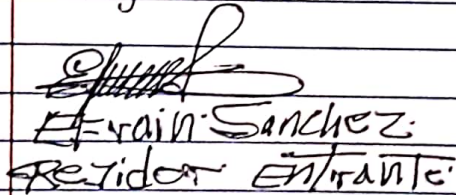 Efrain Sanchez
Regidor Entrante